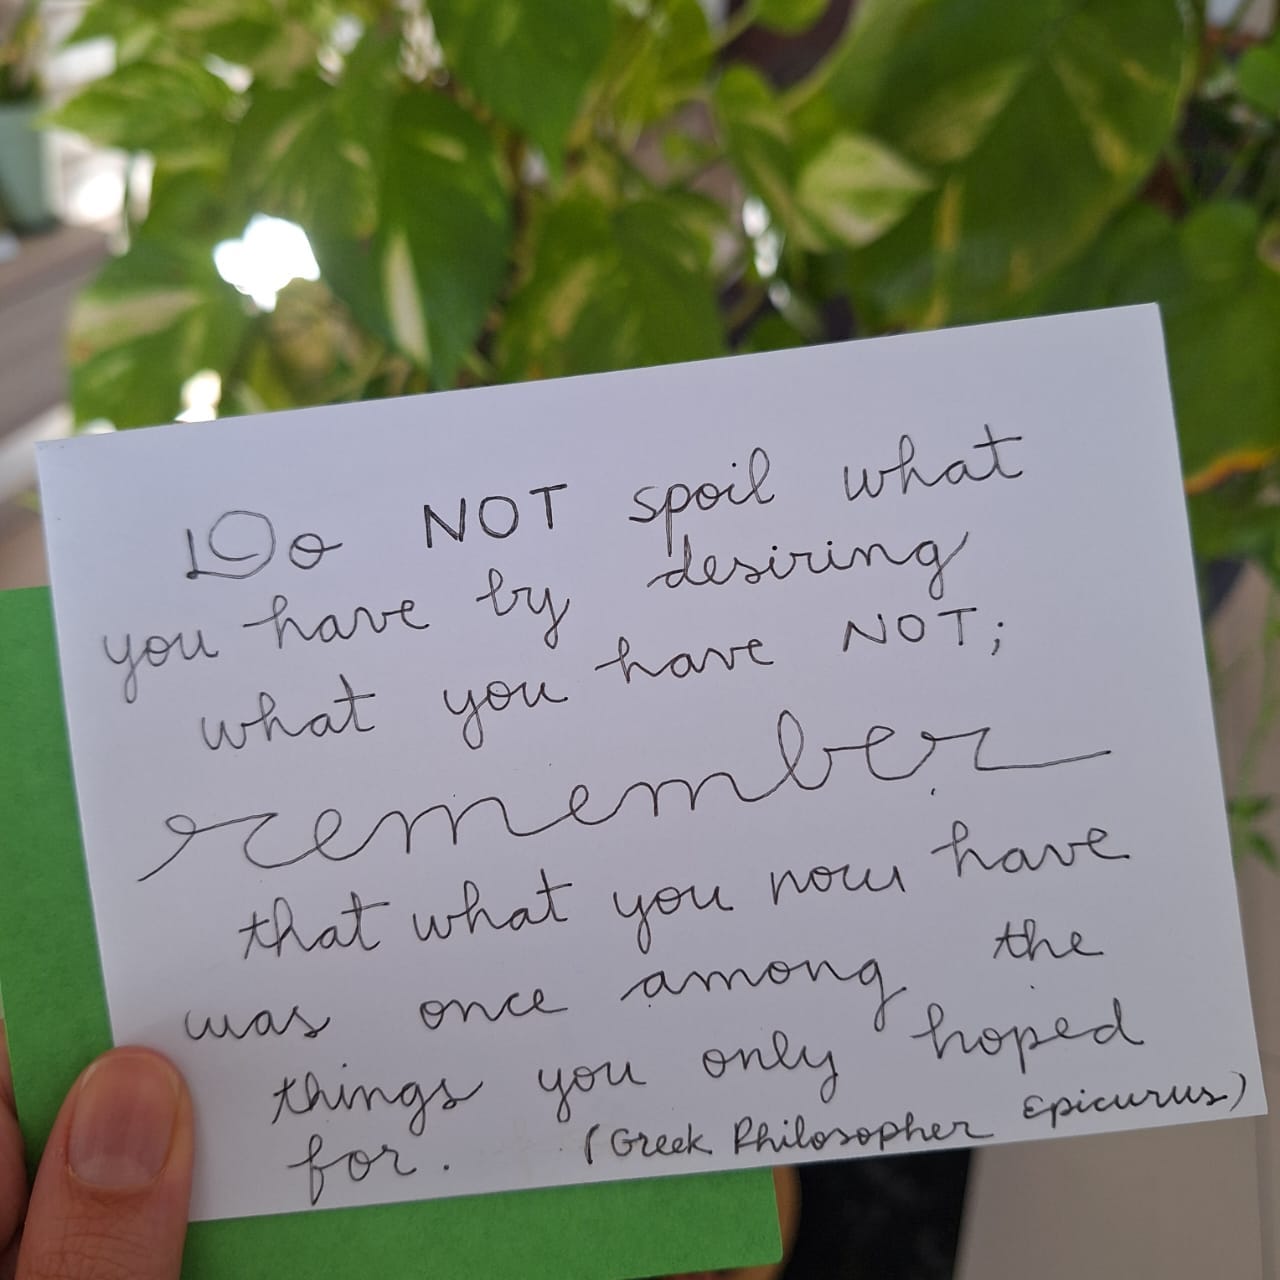 Do NOT spoil what
you have by desiring
what you have NOT;
remember
that what you now have
was once among the
things you only hoped
for. (Greek Philosopher Epicurus)